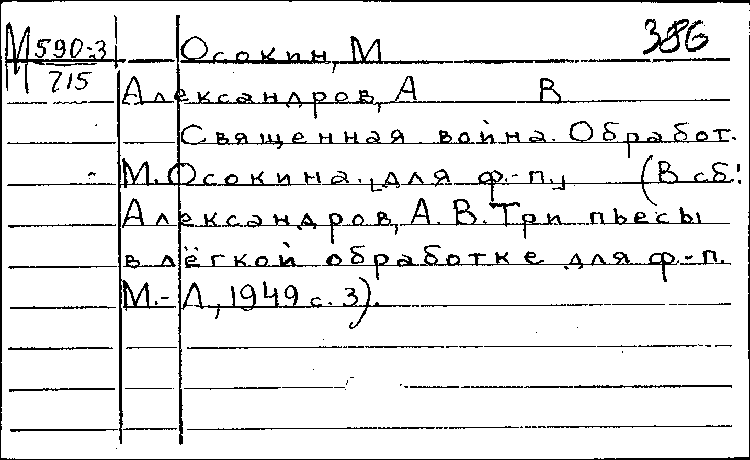 М 590-3 Осокин, М 386
715
Александров, А В
Священная война. Обработ.
М. Осокина. [для ф.-п.] (В сб:
Александров, А. В. Три пьесы
в лёгкой обработке для ф.-п.
М.-Л., 1949 с. 3).